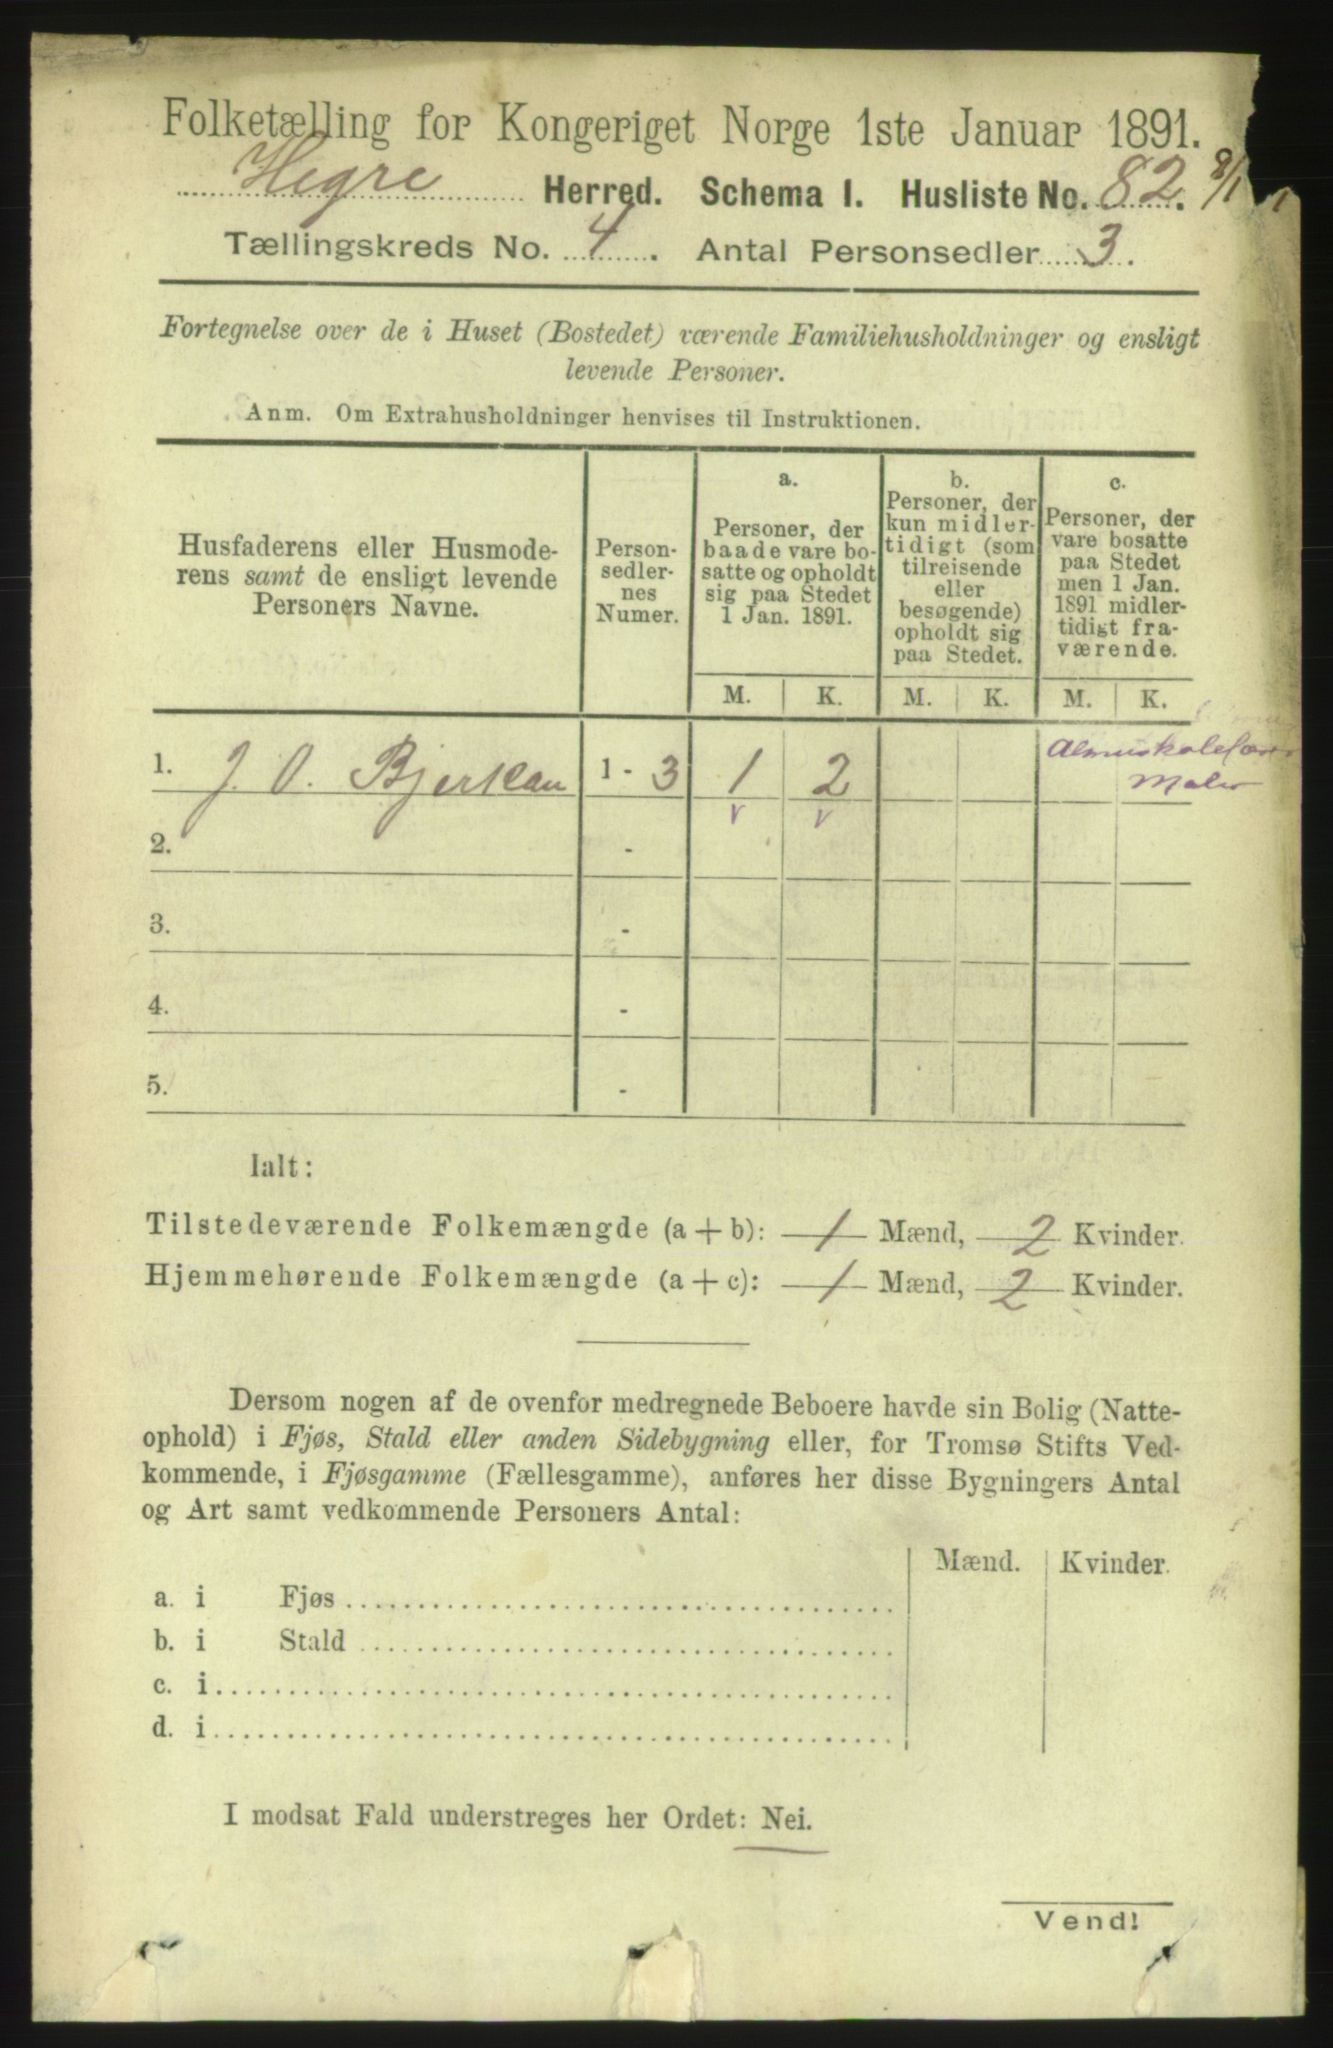 Folketælling for Kongeriget Norge 1ste Januar 1891.
Hegre Herred. Schema I. Husliste No. 82. 8/1
Tællingskreds No. 4. Antal Personsedler 3.
Fortegnelse over de i Huset (Bostedet) værende Familiehusholdninger og ensligt
levende Personer.
Anm. Om Extrahusholdninger henvises til Instruktionen.
Husfaderens eller Husmode-
rens samt de ensligt levende
Personers Navne.
Person-
sedler-
nes
Numer.
a.
Personer, der
baade vare bo-
satte og opholdt
sig paa Stedet
1 Jan. 1891.
b.
Personer, der
kun midler-
tidigt (som
tilreisende
eller
besøgende)
opholdt sig
paa Stedet.
c.
Personer, der
vare bosatte
paa Stedet
men 1 Jan.
1891 midler-
tidigt fra-
værende.
M. K. M. K. M. K.
1. J. O. Bjerkan 1 - 3 1 2
v v
2. -
3. -
4. -
5. -
Ialt:
Tilstedeværende Folkemængde (a + b): 1 Mænd, 2 Kvinder.
Hjemmehørende Folkemængde (a + c): 1 Mænd, 2 Kvinder.
Dersom nogen af de ovenfor medregnede Beboere havde sin Bolig (Natte-
ophold) i Fjøs, Stald eller anden Sidebygning eller, for Tromsø Stifts Ved-
kommende, i Fjøsgamme (Fællesgamme), anføres her disse Bygningers Antal
og Art samt vedkommende Personers Antal:
Mænd. Kvinder.
a. i Fjøs
b. i Stald
c. i
d. i
I modsat Fald understreges her Ordet: Nei.
Vend!